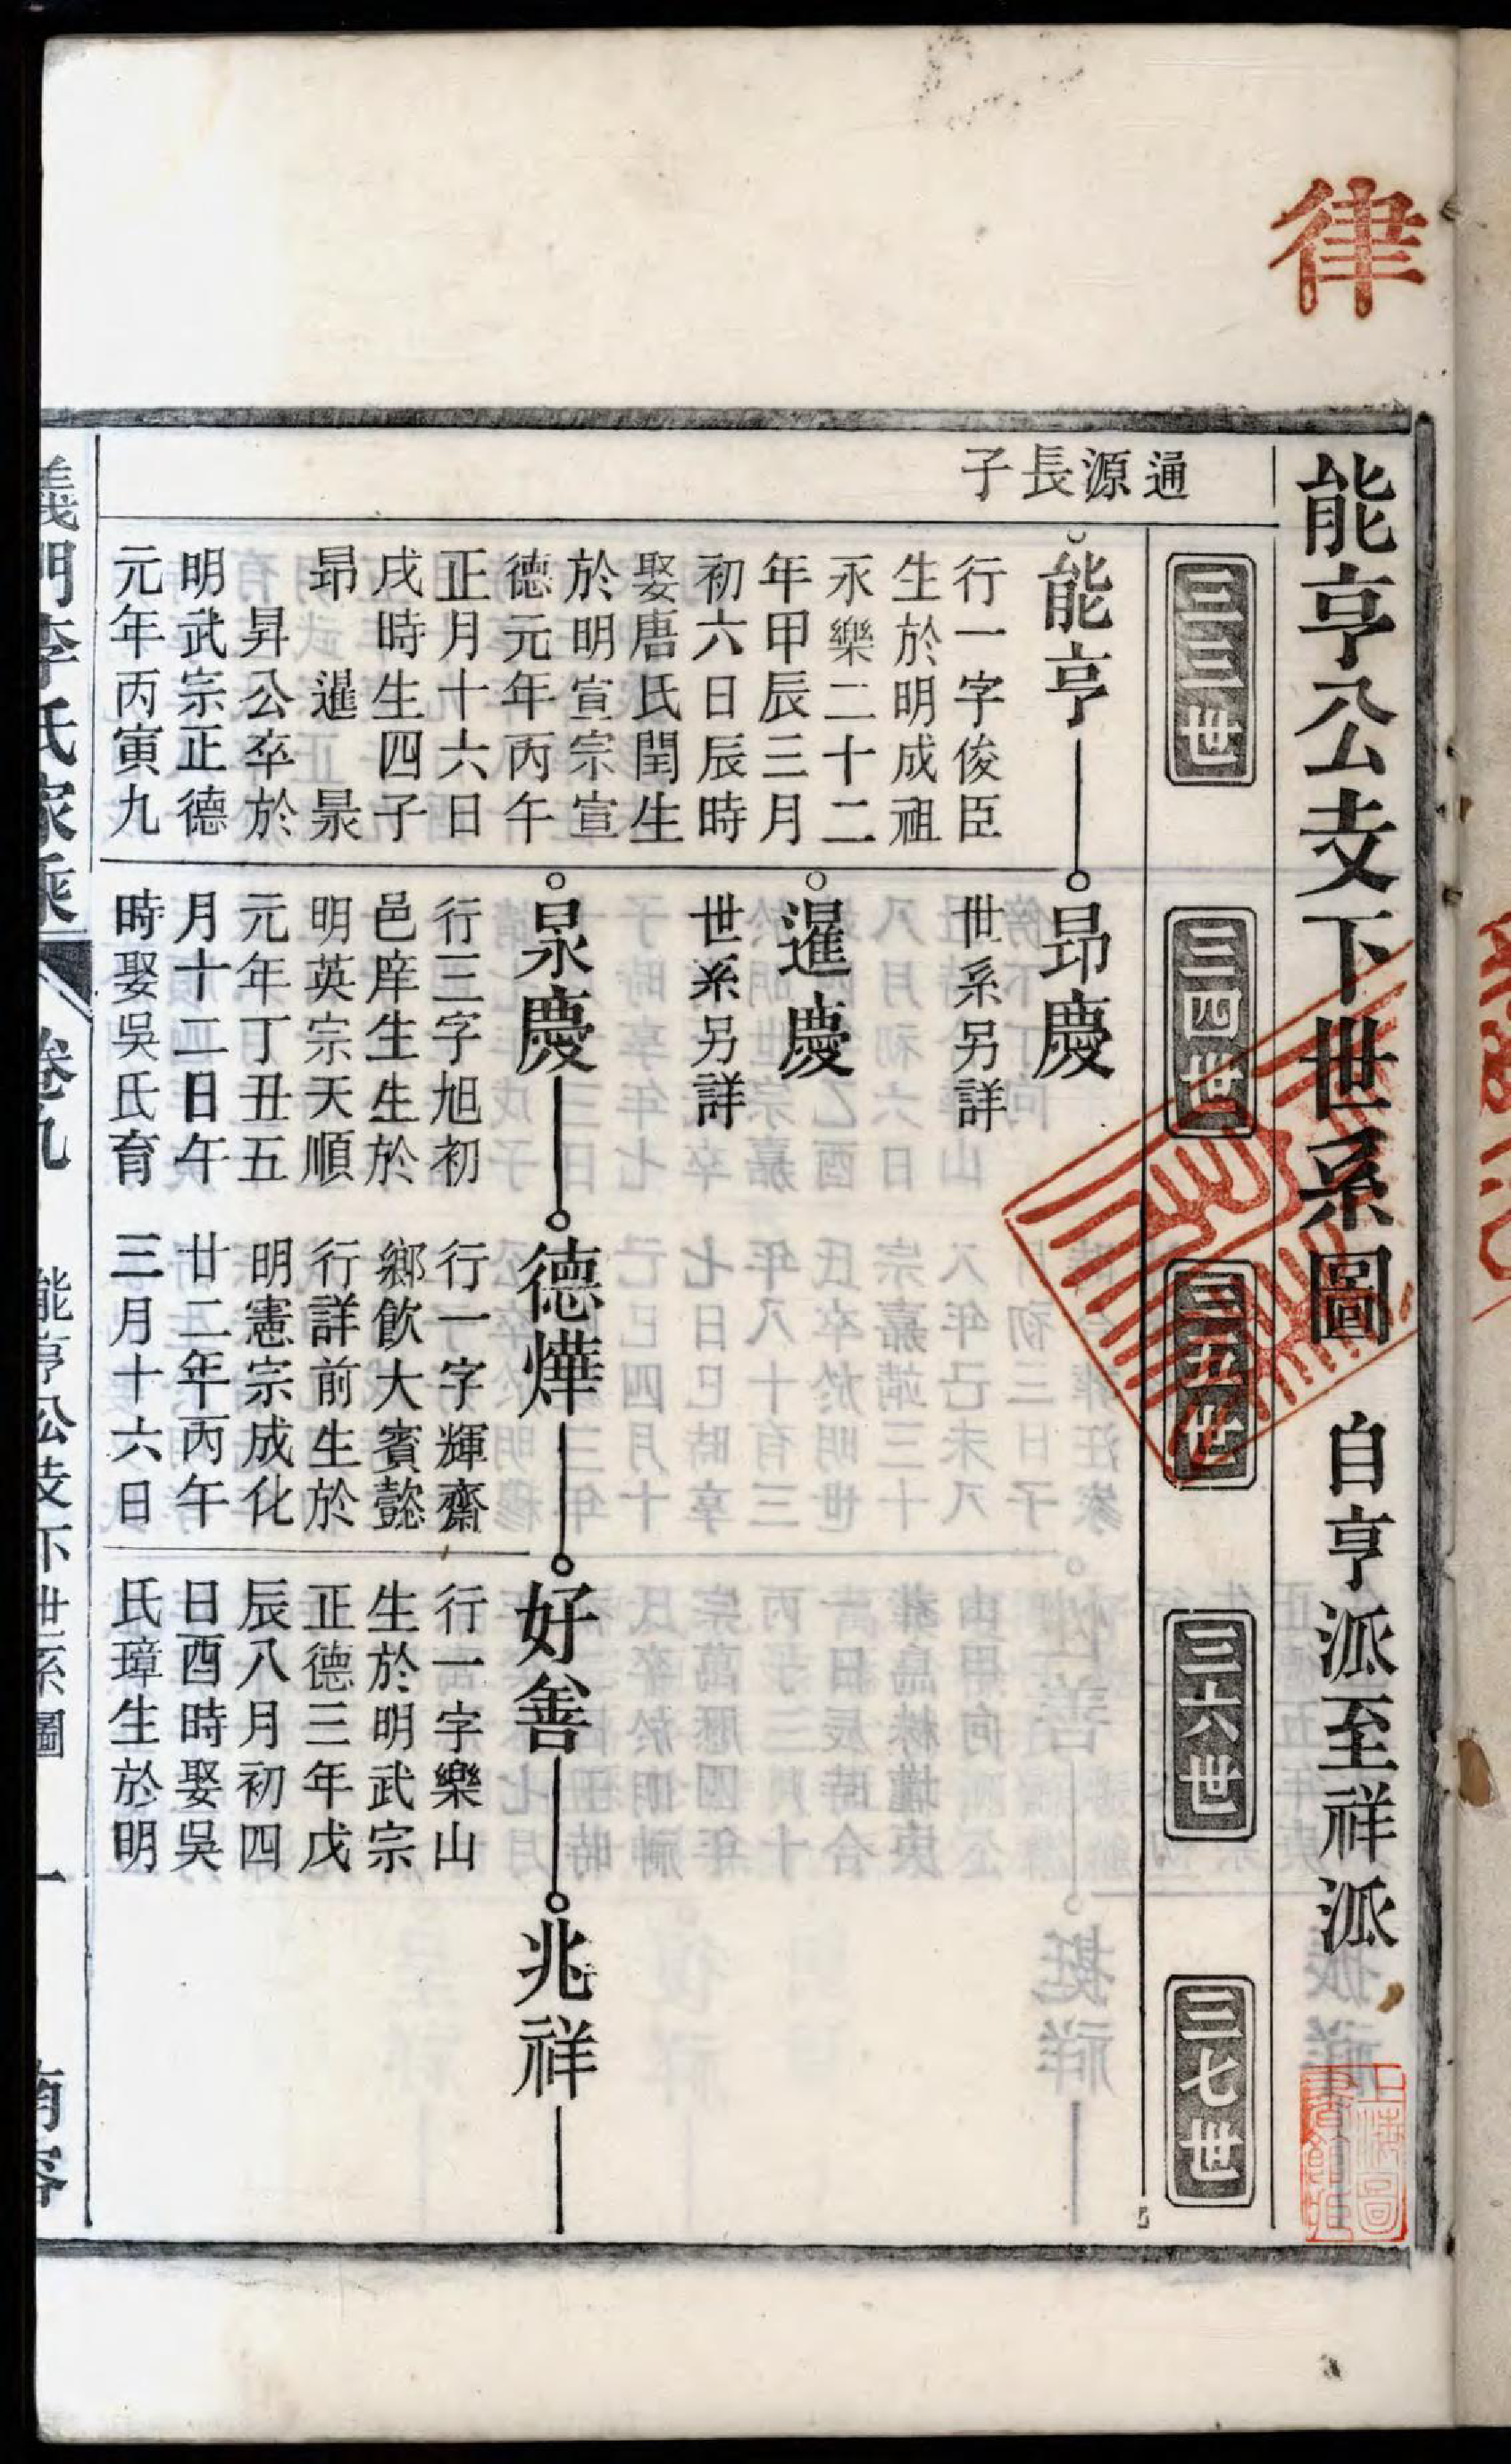 律
能亨公支下世系圖 自亨派至祥派
通源長子
三三世
三四世
三五世
三六世
三七世
能亨
行一字俊臣
生於明成祖
永樂二十二
年甲辰三月
初六日辰時
娶唐氏閏生
於明宣宗宣
德元年丙午
正月十六日
戌時生四子
昂 暹 晟
昇公卒於
明武宗正德
元年丙寅九
昂慶
世系另詳
暹慶
世系另詳
晟慶
行三字旭初
邑庠生生於
明英宗天順
元年丁丑五
月十二日午
時娶吳氏育
德燁
行一字輝齋
鄉飲大賓懿
行詳前生於
明憲宗成化
廿二年丙午
三月十六日
好善
行一字樂山
生於明武宗
正德三年戊
辰八月初四
日酉時娶吳
氏璋生於明
兆祥
義門李氏家乘 卷九 能亨公支下世系圖 一